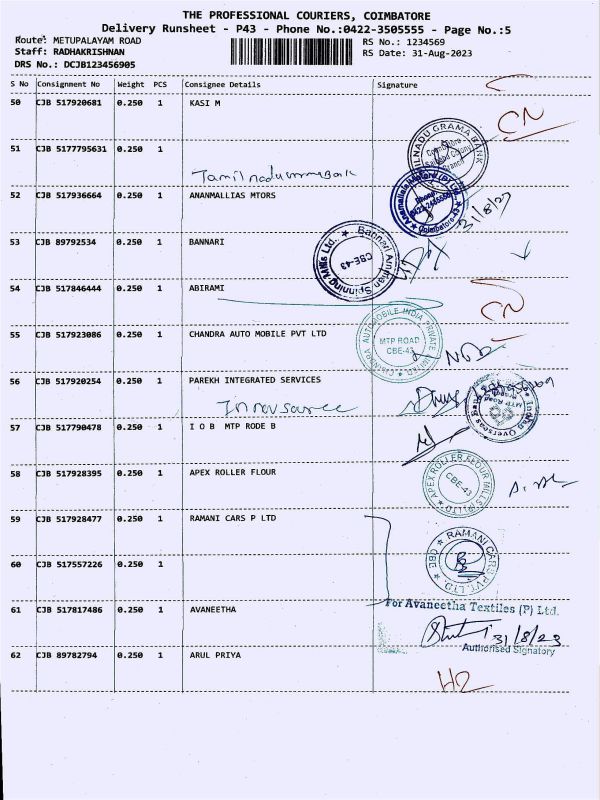 THE PROFESSIONAL COURIERS, COIMBATORE
Delivery Runsheet - P43 - Phone No.:0422-3505555 - Page No.:5
Route: METUPALAYAM ROAD
RS No.: 1234569
Staff: RADHAKRISHNAN
RS Date: 31-Aug-2023
DRS No.: DCJB123456905
S No Consignment No Weight PCS Consignee Details Signature
50 CJB 517920681 0.250 1 KASI M
CN
51 CJB 5177795631 0.250 1
TAMILNADU GRAMA BANK
Coimbatore
Branch
52 CJB 517936664 0.250 1 ANANMALLIAS MTORS
Coimbatore-43
31/8/23
53 CJB 89792534 0.250 1 BANNARI
Bannari Amman Spinning Mills Ltd.
CBE-43
54 CJB 517846444 0.250 1 ABIRAMI
CN
55 CJB 517923086 0.250 1 CHANDRA AUTO MOBILE PVT LTD
CHANDRA AUTOMOBILE INDIA PRIVATE LIMITED
MTP ROAD
CBE-43
56 CJB 517920254 0.250 1 PAREKH INTEGRATED SERVICES
57 CJB 517790478 0.250 1 I O B MTP RODE B
Indian Overseas Bank
MTP Road
58 CJB 517928395 0.250 1 APEX ROLLER FLOUR
APEX ROLLER FLOUR MILLS (P) LTD
CBE-43
59 CJB 517928477 0.250 1 RAMANI CARS P LTD
RAMANI CARS PVT. LTD.
CBE
60 CJB 517557226 0.250 1
61 CJB 517817486 0.250 1 AVANEETHA
For Avaneetha Textiles (P) Ltd.
31/8/23
Authorised Signatory
62 CJB 89782794 0.250 1 ARUL PRIYA
H2